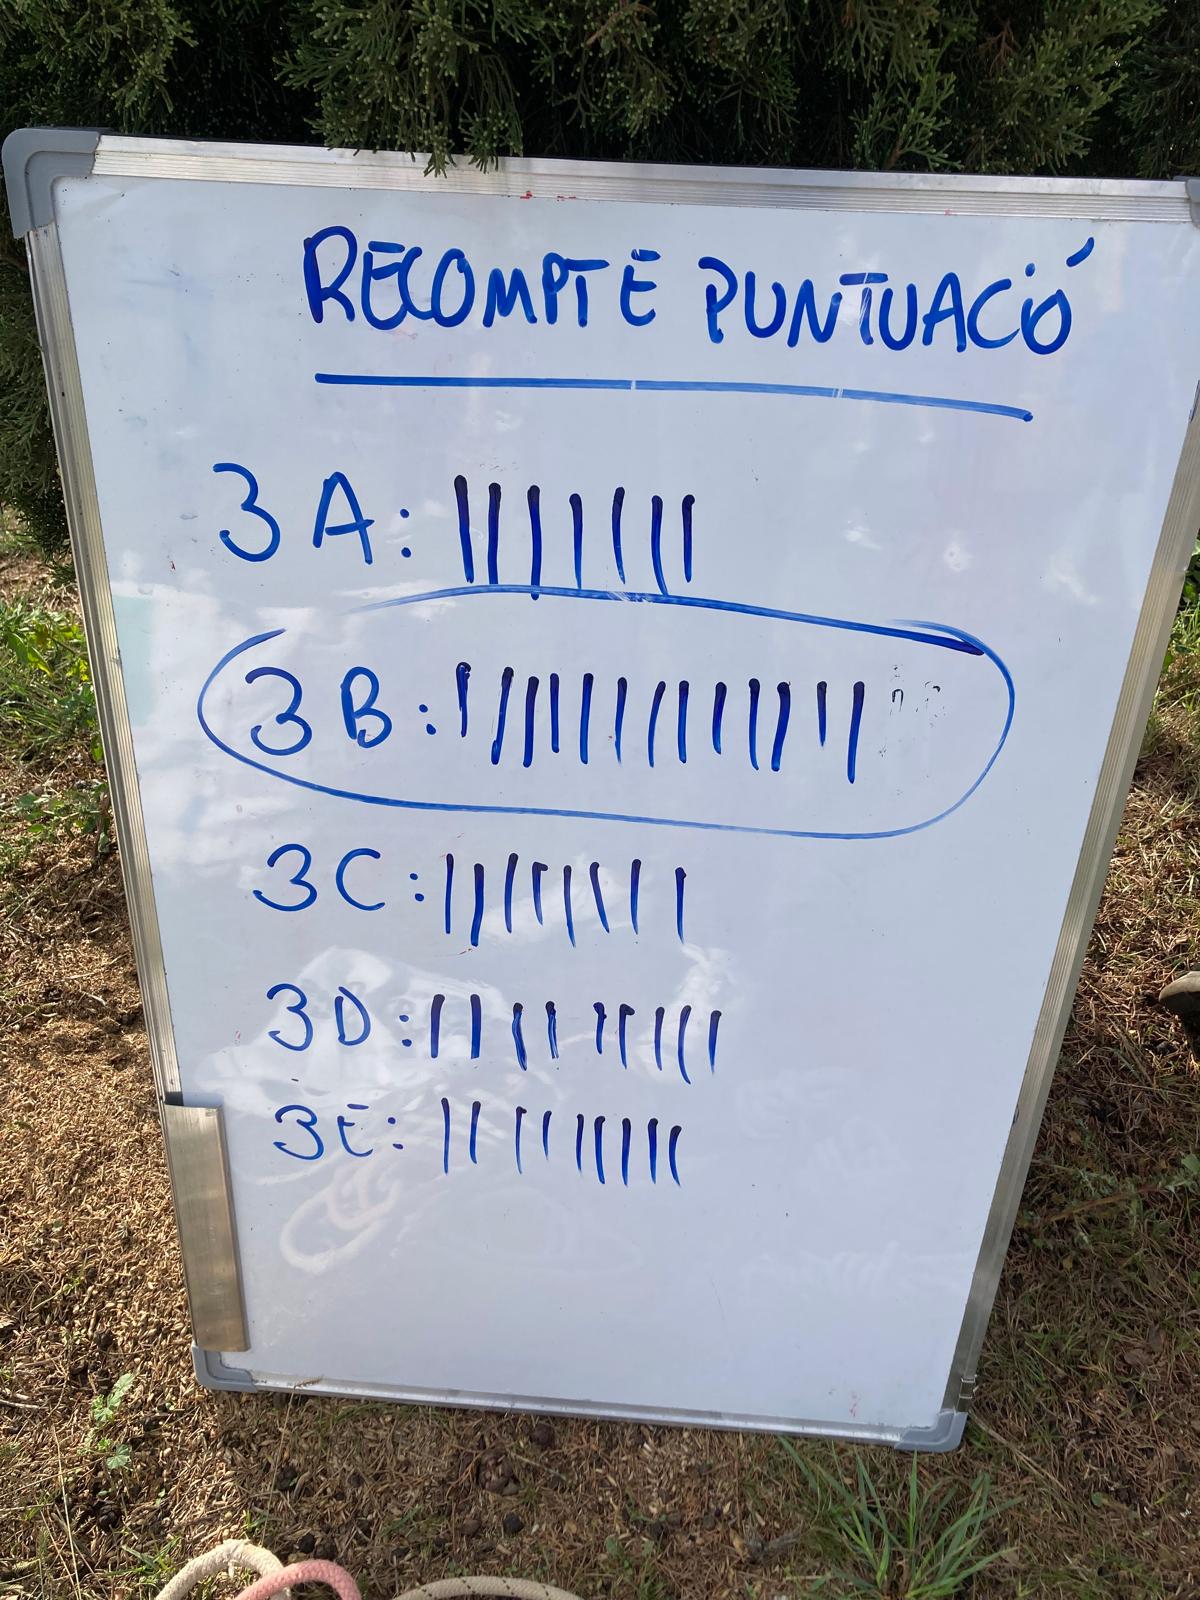 RECOMPTE PUNTUACIÓ
3A: |||||||
3B: |||||||||||||
3C: ||||||||
3D: |||||||||
3E: |||||||||